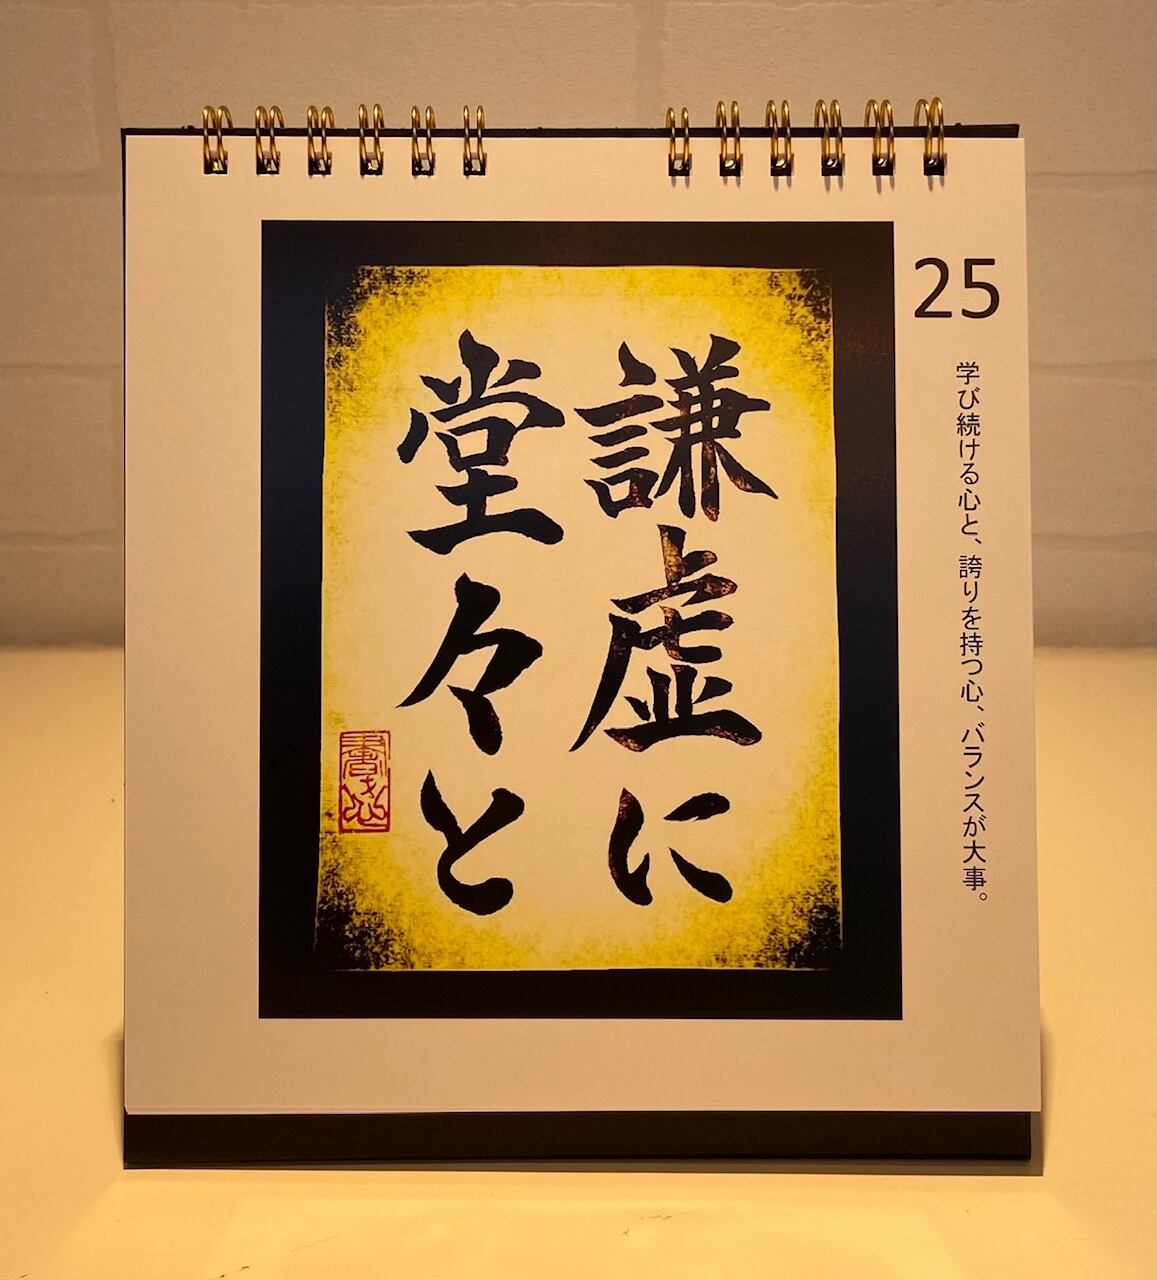 25
謙虚に
堂々と
学び続ける心と、誇りを持つ心、バランスが大事。